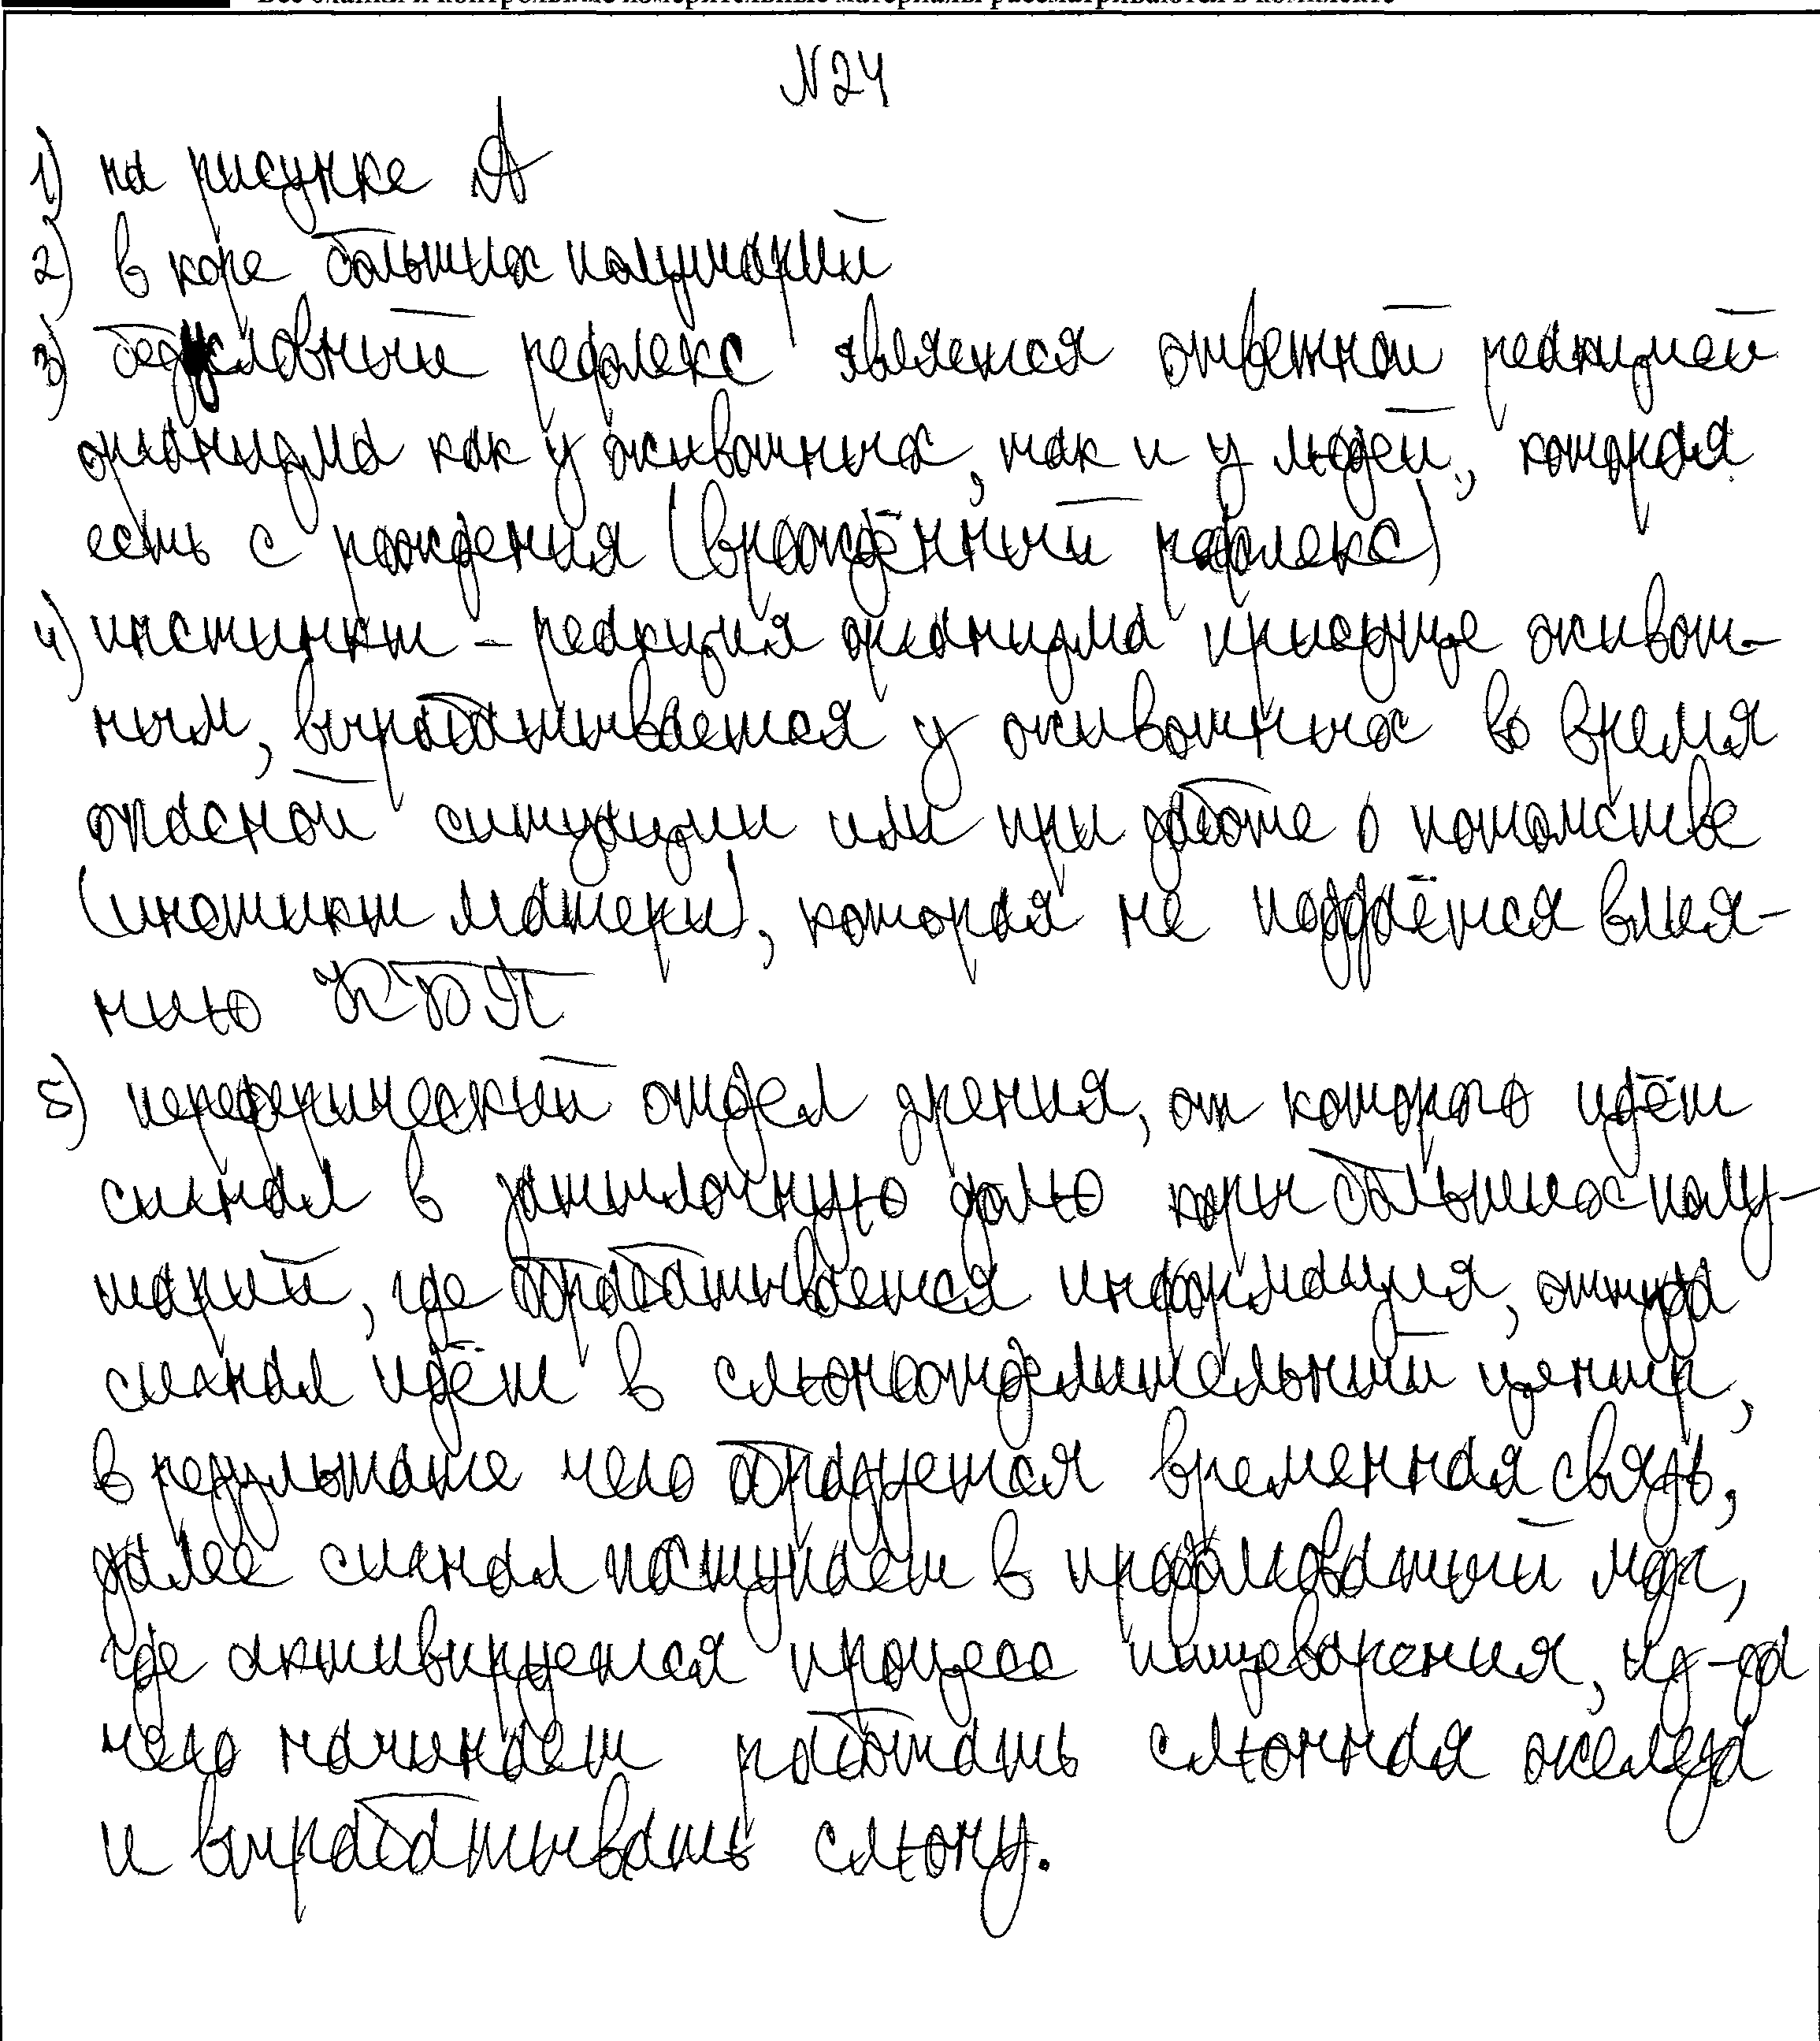 Все бланки и контрольные измерительные материалы рассматриваются в комплекте
№24
1) на рисунке А
2) в коре больших полушарий
3) безусловный рефлекс является ответной реакцией
организма как у животных, так и у людей, которая
есть с рождения (врождённый рефлекс)
4) инстинкт - реакция организма присущие живот-
ным, вырабатывается у животных во время
опасной ситуации или при заботе о потомстве
(инстинкт матери), которая не поддаётся влия-
нию КБП
5) переферический отдел зрения, от которого идёт
сигнал в затылочную долю коры больших полу-
шарий, где обрабатывается информация, оттуда
сигнал идёт в слюноотделительный центр,
в результате чего образуется временная связь,
далее сигнал поступает в продолговатый мозг,
где активируется процесс пищеварения, из-за
чего начинает работать слюнная железа
и вырабатывать слюну.